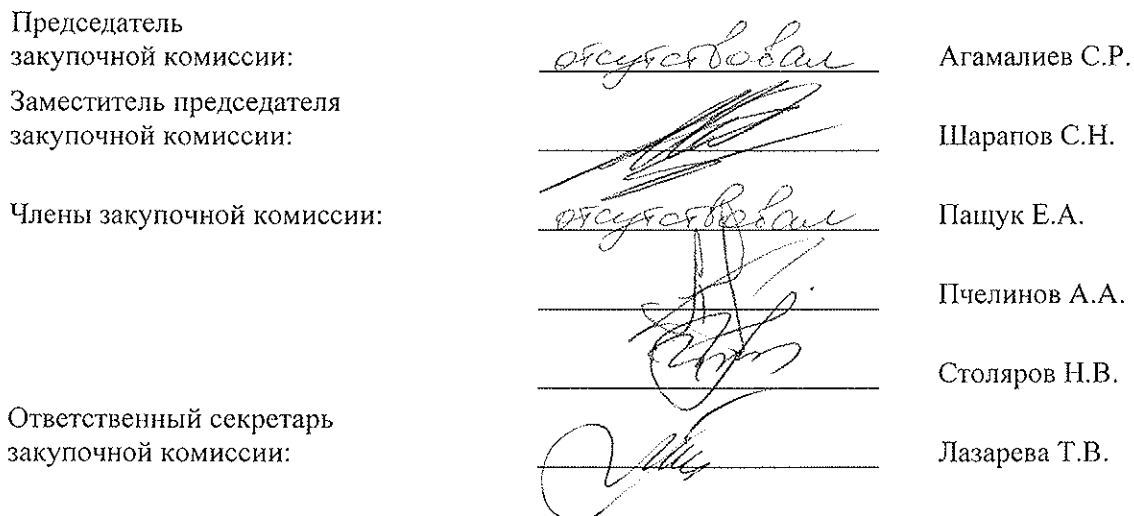 Председатель
закупочной комиссии: отсутствовал Агамалиев С.Р.
Заместитель председателя
закупочной комиссии: Шарапов С.Н.
Члены закупочной комиссии: отсутствовал Пащук Е.А.
Пчелинов А.А.
Столяров Н.В.
Ответственный секретарь
закупочной комиссии: Лазарева Т.В.